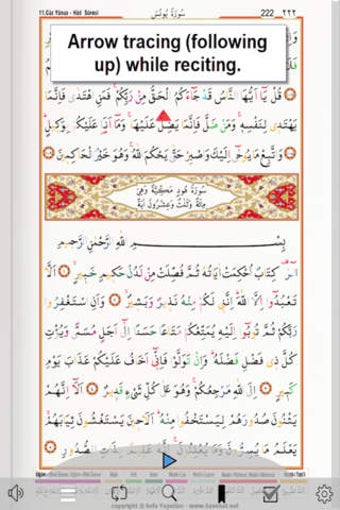 11.Cüz Yûnus - Hûd Sûresi سُورَةُ يُونُسَ 222 ٢٢٢
Arrow tracing (following
up) while reciting.
قُلْ يَٓا اَيُّهَا النَّاسُ قَدْ جَٓاءَكُمُ الْحَقُّ مِنْ رَبِّكُمْۚ فَمَنِ اهْتَدٰى فَاِنَّمَا
يَهْتَد۪ي لِنَفْسِه۪ۚ وَمَنْ ضَلَّ فَاِنَّمَا يَضِلُّ عَلَيْهَاۚ وَمَٓا اَنَا۬ عَلَيْكُمْ بِوَك۪يلٍۜ
وَاتَّبِعْ مَا يُوحٰٓى اِلَيْكَ وَاصْبِرْ حَتّٰى يَحْكُمَ اللّٰهُۚ وَهُوَ خَيْرُ الْحَاكِم۪ينَ
سُورَةُ هُودٍ مَكِّيَّةٌ وَهِيَ
مِائَةٌ وَثَلٰثٌ وَعِشْرُونَ اٰيَةً
بِسْمِ اللّٰهِ الرَّحْمٰنِ الرَّح۪يمِ
الٓرٰ۠ كِتَابٌ اُحْكِمَتْ اٰيَاتُهُ ثُمَّ فُصِّلَتْ مِنْ لَدُنْ حَك۪يمٍ خَب۪يرٍۙ اَلَّا
تَعْبُدُٓوا اِلَّا اللّٰهَۜ اِنَّن۪ي لَكُمْ مِنْهُ نَذ۪يرٌ وَبَش۪يرٌۙ وَاَنِ اسْتَغْفِرُوا
رَبَّكُمْ ثُمَّ تُوبُٓوا اِلَيْهِ يُمَتِّعْكُمْ مَتَاعًا حَسَنًا اِلٰٓى اَجَلٍ مُسَمًّى وَيُؤْتِ
كُلَّ ذ۪ي فَضْلٍ فَضْلَهُۜ وَاِنْ تَوَلَّوْا فَاِنّ۪ٓي اَخَافُ عَلَيْكُمْ عَذَابَ يَوْمٍ
كَب۪يرٍ اِلَى اللّٰهِ مَرْجِعُكُمْۚ وَهُوَ عَلٰى كُلِّ شَيْءٍ قَد۪يرٌ اَلَٓا اِنَّهُمْ
يَثْنُونَ صُدُورَهُمْ لِيَسْتَخْفُوا مِنْهُۜ اَلَا ح۪ينَ يَسْتَغْشُونَ ثِيَابَهُمْۙ
يَعْلَمُ مَا يُسِرُّونَ وَمَا يُعْلِنُونَۚ اِنَّهُ عَل۪يمٌ بِذَاتِ الصُّدُورِ